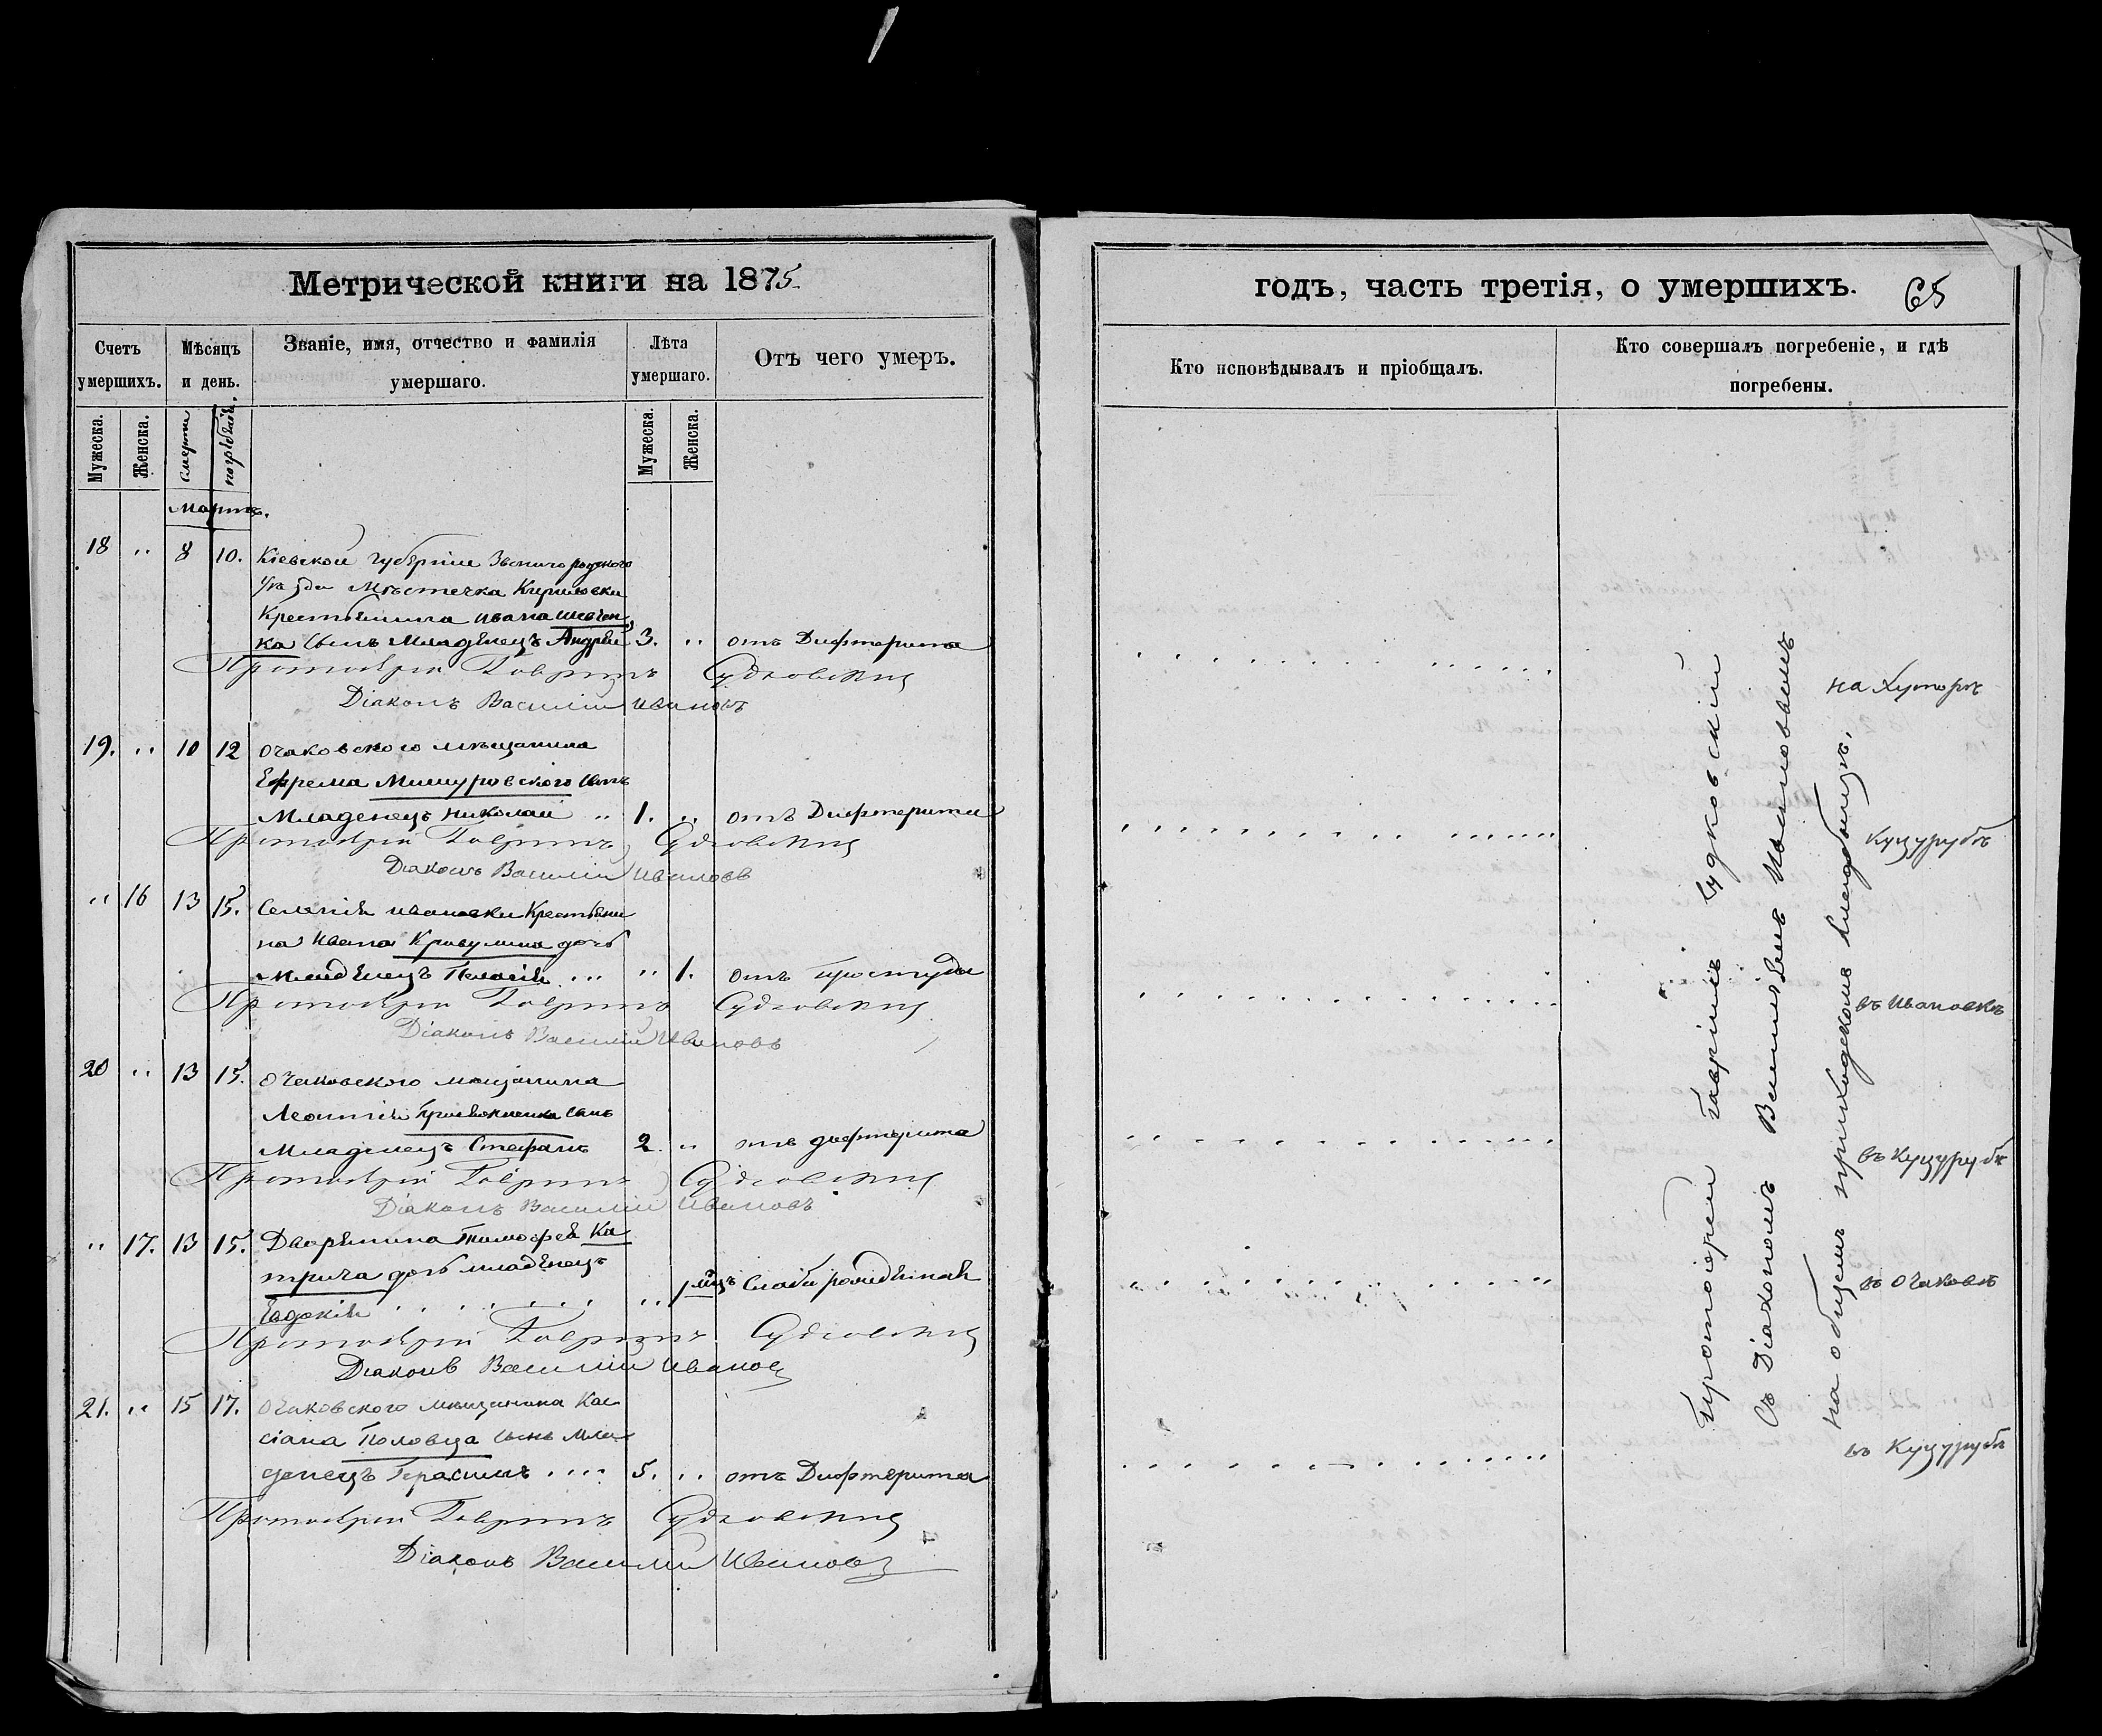 Метрической книги на 1875
Счетъ умершихъ.
Мѣсяцъ и день.
Званіе, имя, отчество и фамилія умершаго.
Лѣта умершаго.
Отъ чего умеръ.
Мужеска.
Женска.
смерти
погребенія.
Мужеска.
Женска.
Мартъ.
18 " 8 10. Кіевской Губерніи Звенигородского
уѣзда Мѣстечка Кириловки
Крестьянина Ивана Шевчен
ка Сынъ Младенецъ Андрей 3. " отъ Дифтерита
Протоіерей Гавріилъ Судковскій
Діаконъ Василій Ивановъ
19. " 10 12 Очаковского мѣщанина
Ефрема Мишуровского Сынъ
Младенецъ Николай " 1. " отъ Дифтерита
Протоіерей Гавріилъ Судковскій
Діаконъ Василій Ивановъ
" 16 13 15. Селенія Ивановки Крестьяни
на Ивана дочь
младенецъ Пелагія ... " 1. отъ простуды
Протоіерей Гавріилъ Судковскій
Діаконъ Василій Ивановъ
20 " 13 15. Очаковского мѣщанина
Леонтія Сынъ
Младенецъ Стефанъ 2. " отъ дифтерита
Протоіерей Гавріилъ Судковскій
Діаконъ Василій Ивановъ
" 17. 13 15. Дворянина Тимофея Ка
трича дочь младенецъ
Евдокія . . . . . . . " 1 мцъ Слаборожденная
Протоіерей Гавріилъ Судковскій
Діаконъ Василій Ивановъ
21. " 15 17. Очаковского мѣщанина Кас
сіана Половца Сынъ Мла
денецъ Герасимъ .... 5. " отъ Дифтерита
Протоіерей Гавріилъ Судковскій
Діаконъ Василій Ивановъ
годъ, часть третія, о умершихъ.
65
Кто исповѣдывалъ и пріобщалъ.
Кто совершалъ погребеніе, и гдѣ погребены.
Протоіерей Гавріилъ Судковскій
Съ Діакономъ Василіемъ Ивановымъ
на общемъ приходскомъ кладбищѣ.
на Хуторѣ
Куцурубѣ
въ Ивановкѣ
въ Куцурубѣ
въ Очаковѣ
въ Куцурубѣ